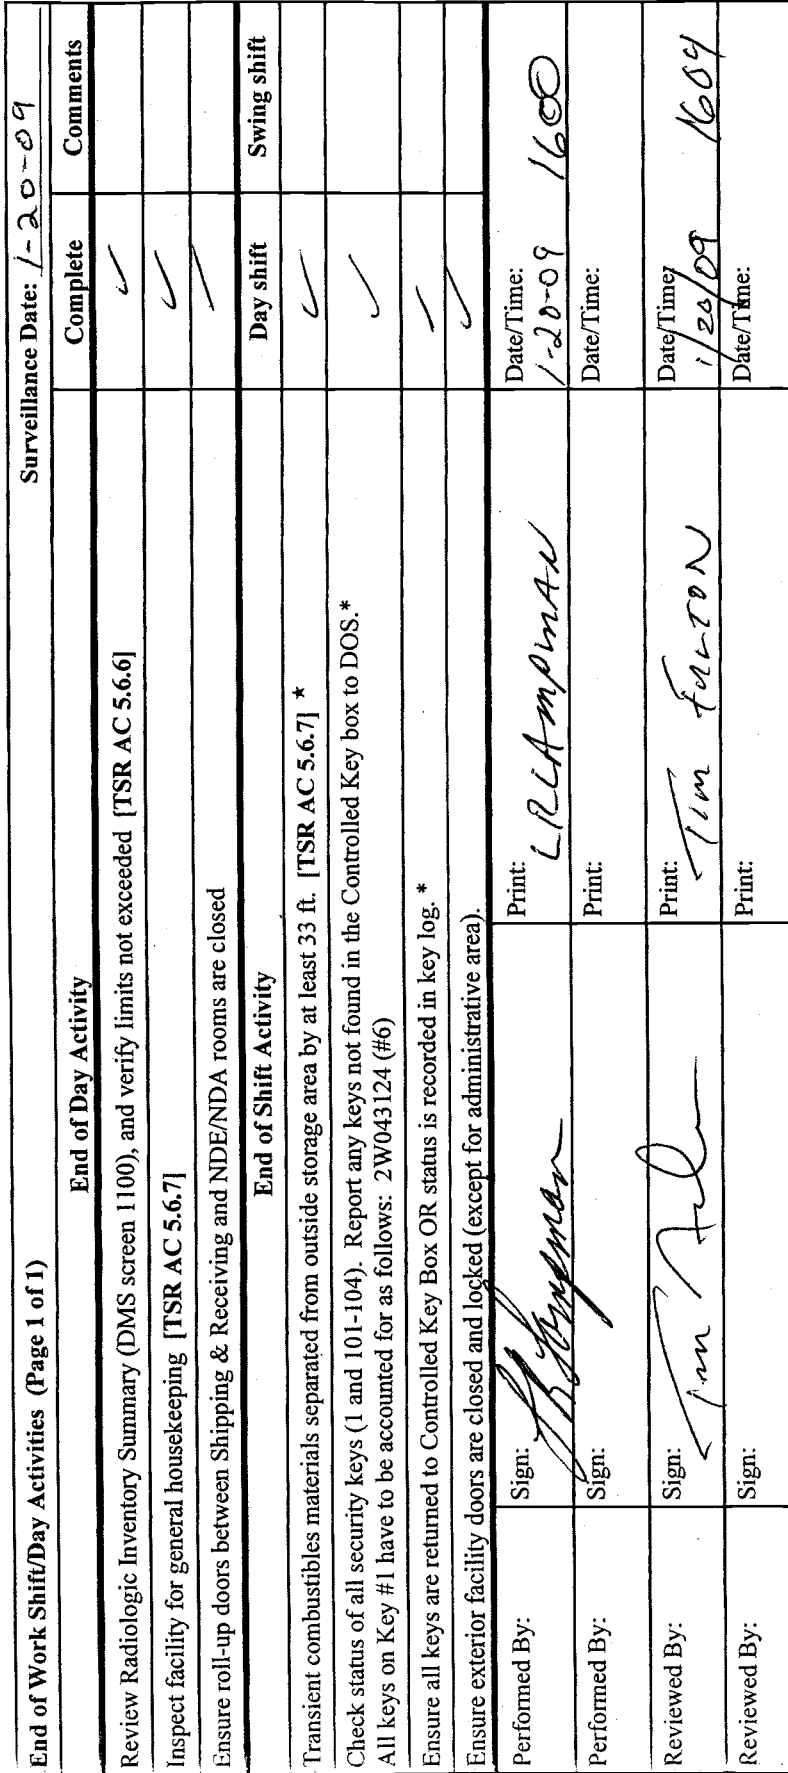 End of Work Shift/Day Activities (Page 1 of 1) Surveillance Date: 1-20-09
End of Day Activity Complete Comments
Review Radiologic Inventory Summary (DMS screen 1100), and verify limits not exceeded [TSR AC 5.6.6] ✓
Inspect facility for general housekeeping [TSR AC 5.6.7] ✓
Ensure roll-up doors between Shipping & Receiving and NDE/NDA rooms are closed ✓
End of Shift Activity Day shift Swing shift
Transient combustibles materials separated from outside storage area by at least 33 ft. [TSR AC 5.6.7] * ✓
Check status of all security keys (1 and 101-104). Report any keys not found in the Controlled Key box to DOS.* ✓
All keys on Key #1 have to be accounted for as follows: 2W043124 (#6)
Ensure all keys are returned to Controlled Key Box OR status is recorded in key log. * ✓
Ensure exterior facility doors are closed and locked (except for administrative area). ✓
Performed By: Sign: Print: Date/Time:
LRLAMPMAN 1-20-09 1600
Performed By: Sign: Print: Date/Time:
Reviewed By: Sign: Print: Date/Time:
Tim Fulton 1/20/09 1604
Reviewed By: Sign: Print: Date/Time: